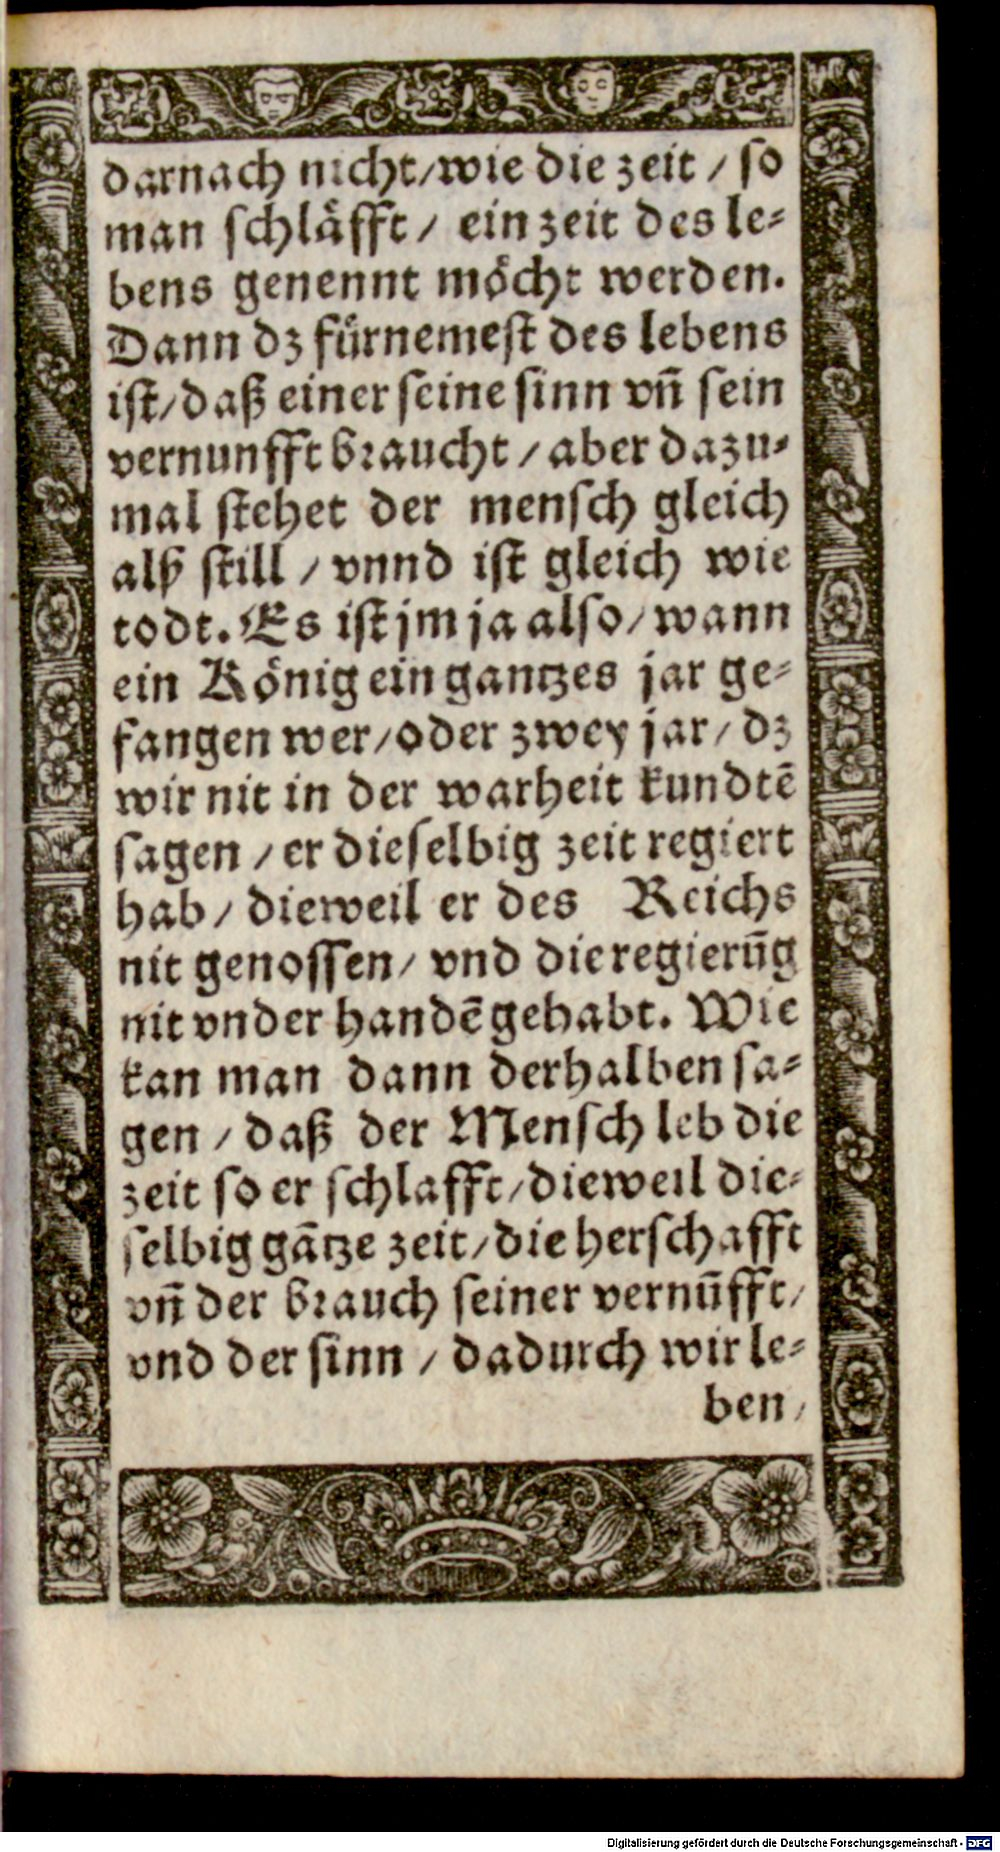 darnach nicht/wie die zeit / so
man schlaͤfft / ein zeit des le⸗
bens genennt moͤcht werden.
Dann dz fuͤrnemest des lebens
ist/daß einer seine sinn vñ sein
vernunfft braucht / aber dazu⸗
mal stehet der mensch gleich
alß still / vnnd ist gleich wie
todt. Es ist jm ja also/wann
ein Koͤnig ein gantzes jar ge⸗
fangen wer/oder zwey jar/ dz
wir nit in der warheit kundtē
sagen /er dieselbig zeit regiert
hab/ dieweil er des Reichs
nit genossen/ vnd die regierūg
nit vnder handē gehabt. Wie
kan man dann derhalben sa⸗
gen / daß der Mensch leb die
zeit so er schlafft/dieweil die⸗
selbig gātze zeit/die herschafft
vñ der brauch seiner vernūfft/
vnd der sinn / dadurch wir le⸗
ben/
Digitalisierung gefördert durch die Deutsche Forschungsgemeinschaft - DFG